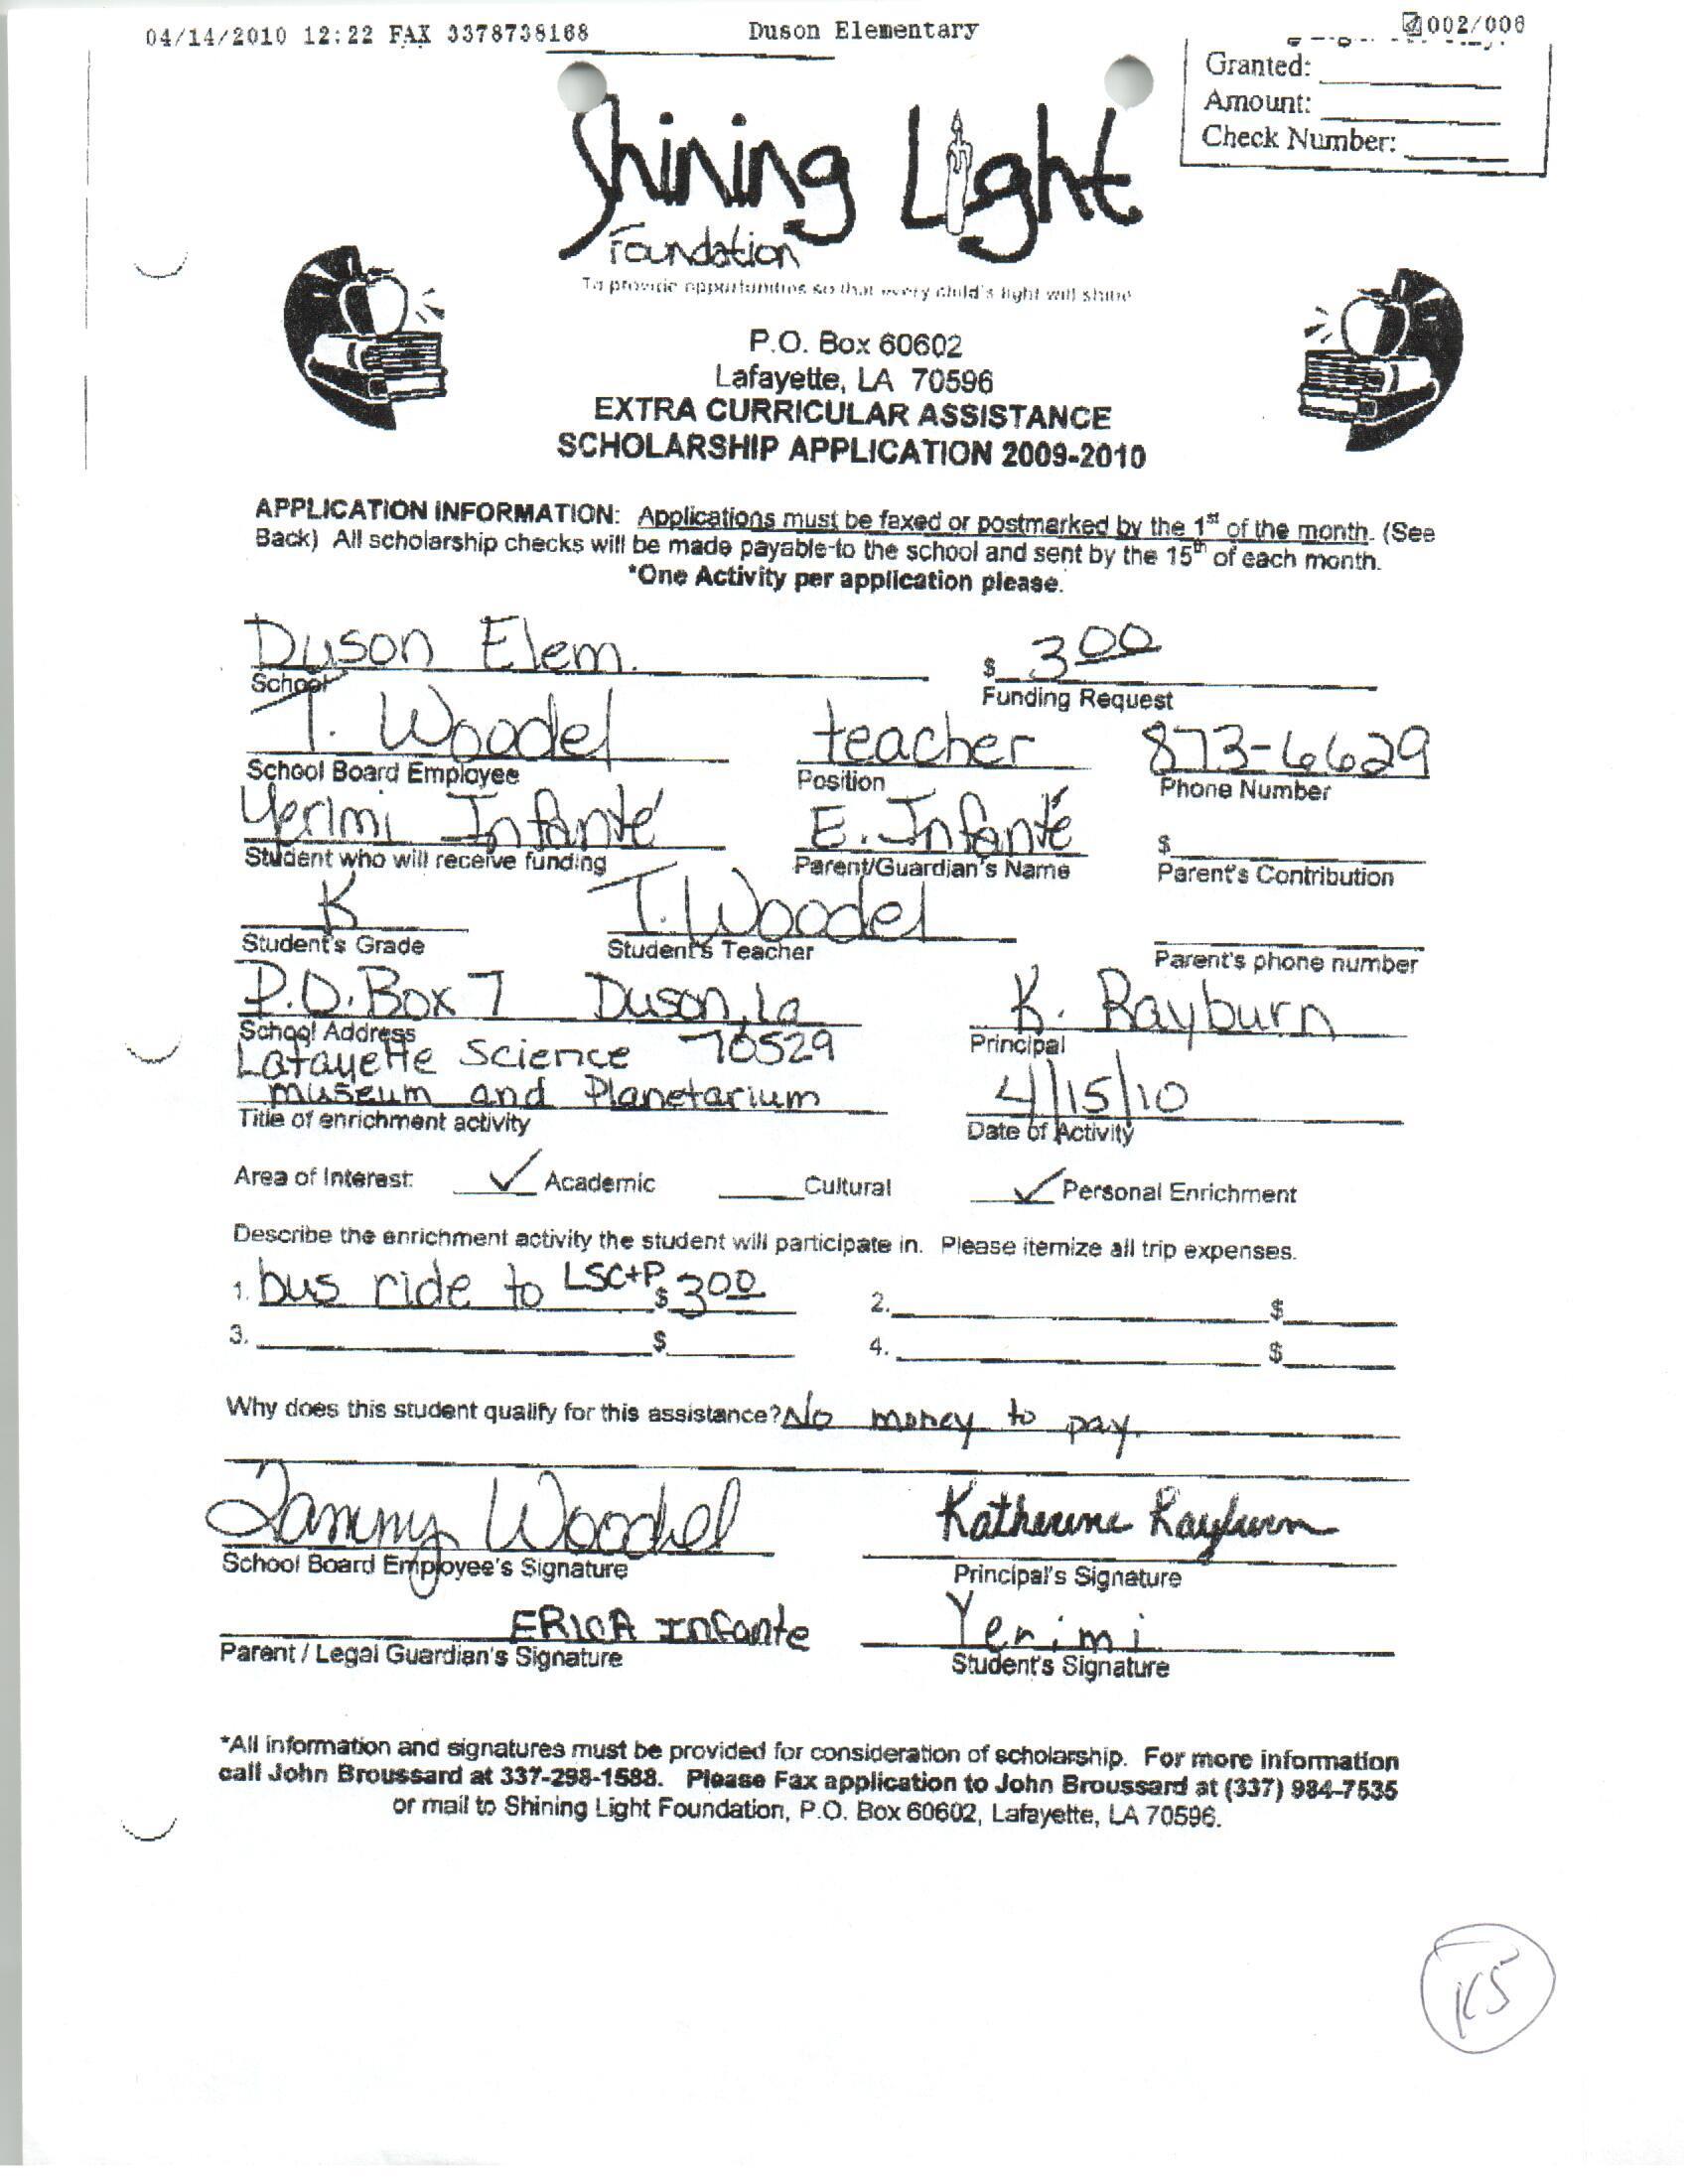 04/14/2010 12:22 FAX 3378738168 Duson Elementary 002/006
Granted:
Amount:
Check Number:
Shining Light
Foundation
To provide opportunities so that every child's light will shine
P.O. Box 60602
Lafayette, LA 70596
EXTRA CURRICULAR ASSISTANCE
SCHOLARSHIP APPLICATION 2009-2010
APPLICATION INFORMATION: Applications must be faxed or postmarked by the 1st of the month. (See
Back) All scholarship checks will be made payable to the school and sent by the 15th of each month.
*One Activity per application please.
Duson Elem. $ 3 00
School Funding Request
T. Woodel teacher 873-6629
School Board Employee Position Phone Number
Yerimi Infanté E. Infanté $
Student who will receive funding Parent/Guardian's Name Parent's Contribution
K T. Woodel
Student's Grade Student's Teacher Parent's phone number
P.O. Box 7 Duson, La K. Rayburn
School Address Principal
Lafayette Science 70529
museum and Planetarium 4/15/10
Title of enrichment activity Date of Activity
Area of Interest: ✓ Academic Cultural ✓ Personal Enrichment
Describe the enrichment activity the student will participate in. Please itemize all trip expenses.
1. bus ride to LSC+P $ 3 00 2. $
3. $ 4. $
Why does this student qualify for this assistance? No money to pay.
Tammy Woodel Katherine Rayburn
School Board Employee's Signature Principal's Signature
ERICA Infante Yerimi
Parent / Legal Guardian's Signature Student's Signature
*All information and signatures must be provided for consideration of scholarship. For more information
call John Broussard at 337-298-1588. Please Fax application to John Broussard at (337) 984-7535
or mail to Shining Light Foundation, P.O. Box 60602, Lafayette, LA 70596.
K5